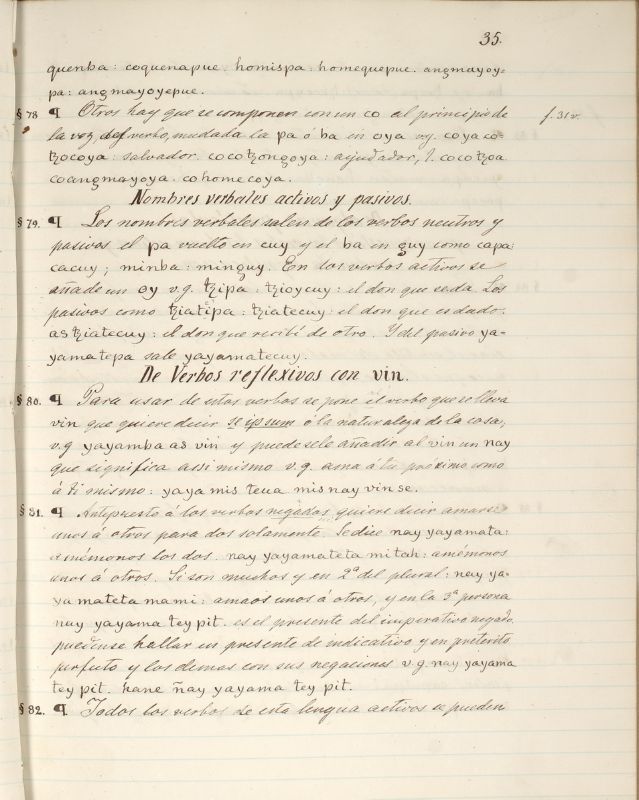 35.
quenba: coquenapue. homispa: homequepue. angmayoy=
pa: angmayoyepue.
§ 78 ¶ Otros hay que se componen con un co al principio de f. 31v.
la voz, del verbo, mudada la pa ó ba en oya vg. coyaco-
tzocoya: salvador. cocotzongoya: ajudador, l. cocotzoa
coangmayoya. cohomecoya.
Nombres verbales activos y pasivos.
§ 79. ¶ Los nombres verbales salen de los verbos neutros y
pasivos el pa vuelto en cuy y el ba en guy como capa:
cacuy; minba: minguy. En los verbos activos se
añade un oy v.g. tzipa: tzioycuy: el don que se da. Los
pasivos como tziatipa: tziatecuy: el don que es dado.
as tziatecuy: el don que recibí de otro. Y del pasivo ya-
yamatepa sale yayamatecuy.
De Verbos reflexivos con vin.
§ 80. ¶ Para usar de estos verbos se pone el verbo que se lleva
vin que quiere decir se ipsum ó la naturaleza de la cosa,
v.g yayamba as vin y puedesele añadir al vin un nay
que significa assi mismo v.g. ama á tu proximo como
á ti mismo: yaya mis teua mis nay vin se.
§ 81. ¶ Antipuesto á los verbos negados quiere decir amarse
unos á otros para dos solamente. Se dice nay yayamata:
amémonos los dos. nay yayamateta mitah: amémonos
unos á otros. Si son muchos y en 2ª del plural: nay ya-
yamateta mami: amaos unos á otros, y en la 3ª persona
nay yayama tey pit. es el presente del imperativo negado.
puedense hallar en presente de indicativo y en preterito
perfecto y los demas con sus negaciones v.g. nay yayama
tey pit. hane nay yayama tey pit.
§ 82. ¶ Todos los verbos de esta lengua activos se pueden